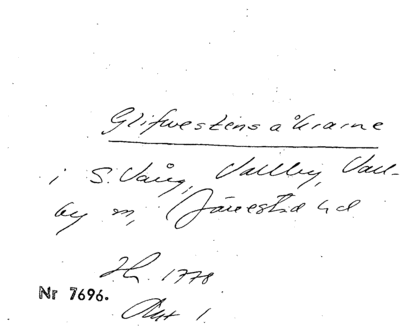 Glifwestens å
i S. Vång, Vallby, Vall-
by m, Järrestad h d
1778
Nr 7696.
Akt 1.